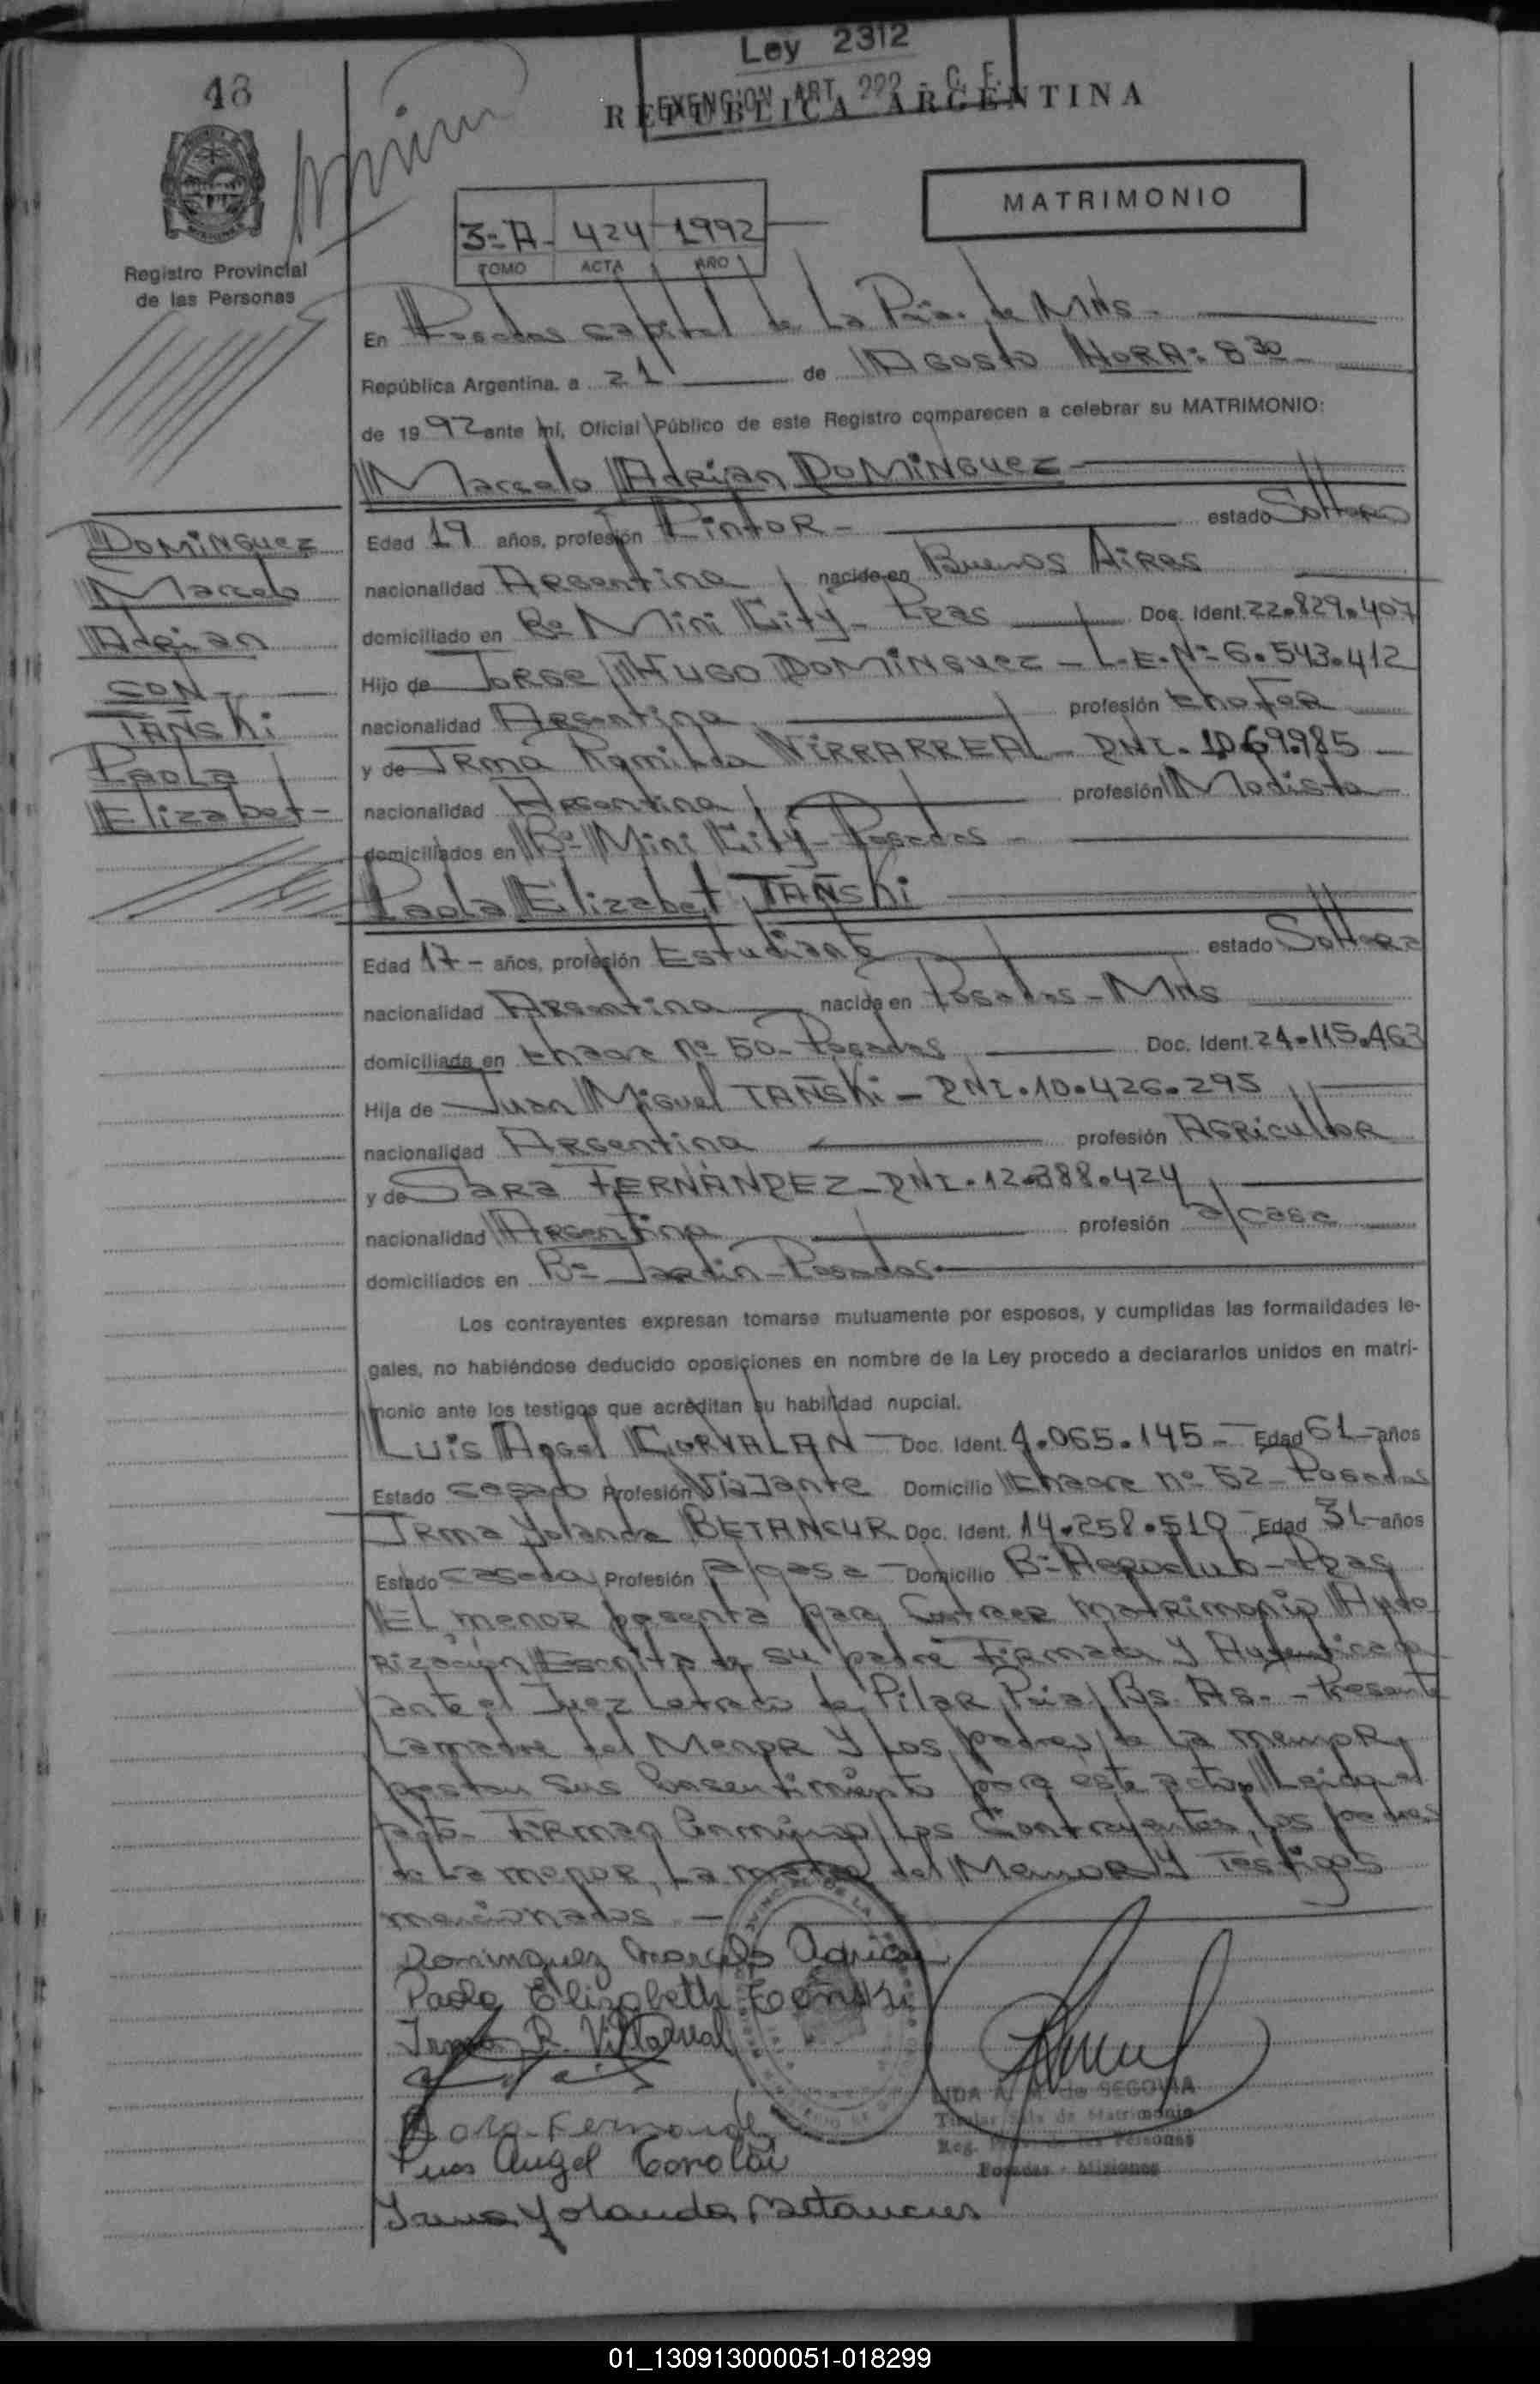 Ley 2312
EXENCION ART. 222 - C. F.
48
REPUBLICA ARGENTINA
MATRIMONIO
3=A- 424 1992
TOMO ACTA AÑO
Registro Provincial
de las Personas
En Posadas capital de La Pcia. de MNS.
República Argentina, a 21 de AGosto HORA: 8 30
de 19 92 ante mí, Oficial Público de este Registro comparecen a celebrar su MATRIMONIO:
Marcelo Adrian DOMINGUEZ
Edad 19 años, profesión Pintor - estado Soltero
nacionalidad Argentina nacido en Buenos Aires
domiciliado en Bº Mini City - Pdas Doc. Ident. 22.829.407
Hijo de Jorge Hugo DOMINGUEZ - L.E.Nº 6.543.412
nacionalidad Argentina profesión Chofer
y de Irma Romilda VIRRARREAL - DNI.
nacionalidad Argentina profesión Modista
domiciliados en Bº Mini City - Posadas -
Paola Elizabet TAÑSKi
Edad 17 - años, profesión Estudiante estado Soltera
nacionalidad Argentina nacida en Posadas - MNS
domiciliada en Chacra Nº 50 - Posadas Doc. Ident. 24.115.463
Hija de Juan Miguel TAÑSKi - DNI. 10.426.295
nacionalidad Argentina profesión AGRicultor
y de Sara FERNÁNDEZ - DNI. 12.388.424
nacionalidad Argentina profesión a/casa
domiciliados en Bº Jardin - Posadas.
Los contrayentes expresan tomarse mutuamente por esposos, y cumplidas las formalidades le-
gales, no habiéndose deducido oposiciones en nombre de la Ley procedo a declararlos unidos en matri-
monio ante los testigos que acreditan su habilidad nupcial.
Luis Angel CORVALAN - Doc. Ident. 4.065.145 - Edad 61 - años
Estado casado Profesión Viajante Domicilio Chacra Nº 52 - Posadas
Irma Yolanda BETANCUR Doc. Ident. 14.258.510 Edad 31 - años
Estado casada Profesión a/casa - Domicilio Bº Aeroclub - Pdas
El menor presenta para Contraer matrimonio Auto
rización Escrita de su padre Firmada y Autenticada
ante el Juez Letrado de Pilar Pcia. Bs. As. - Presente
La madre del Menor y Los padres de La menor,
prestan sus Consentimiento para este acto. Leida el
acta Firman Conmigo Los Contrayentes, los padres
de La menor, La madre del Menor y Testigos
mencionados -
Dominguez Marcelo Adrian
Paola Elizabeth Tañski
Irma R. Villarreal
Sara Fernandez
Luis Angel Corvalan
Irma Yolanda Betancur
LIDA A. M. de SEGOVIA
Titular Sala de Matrimonio
Reg. Prov. de las Personas
Posadas - Misiones
DOMINGUEZ
Marcelo
Adrian
CON
TAÑSKi
Paola
Elizabet-
01_130913000051-018299